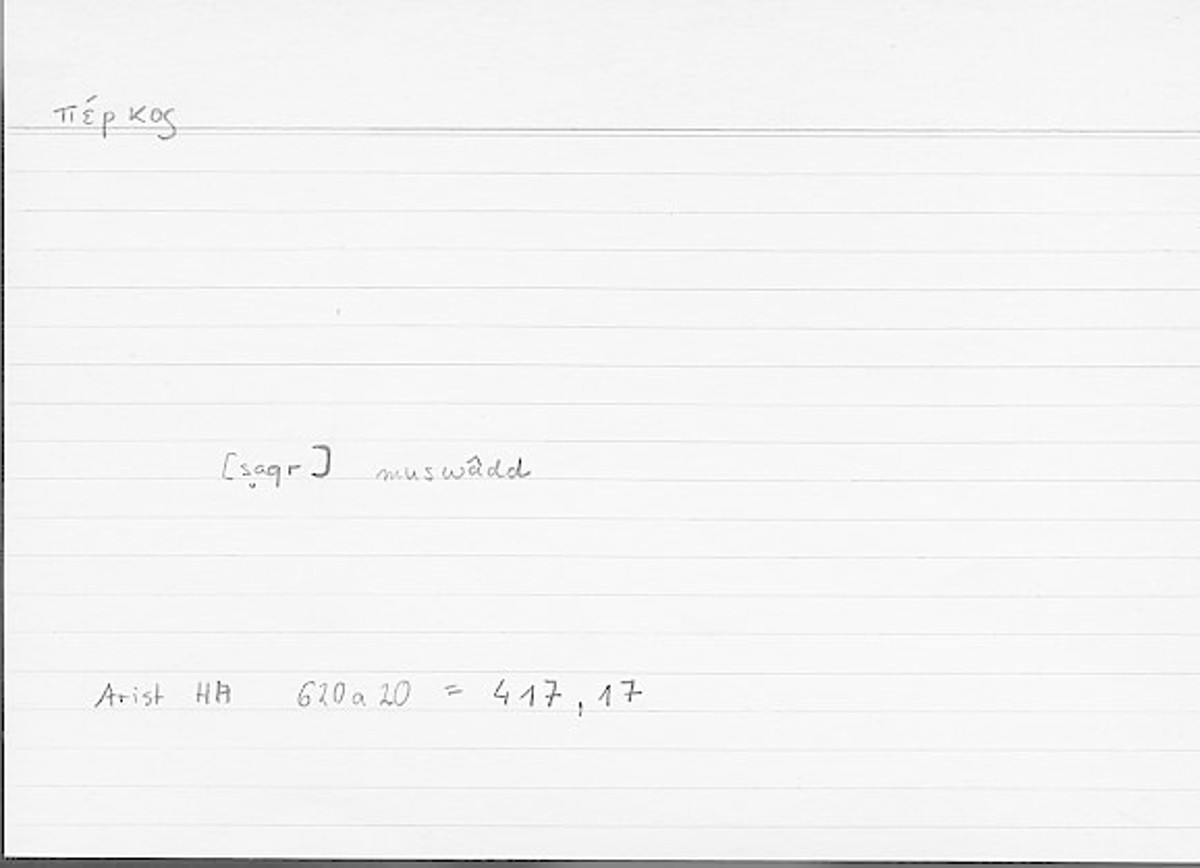 πέρκος
[ṣaqr] muswâdd
Arist HA 620a20 = 417,17